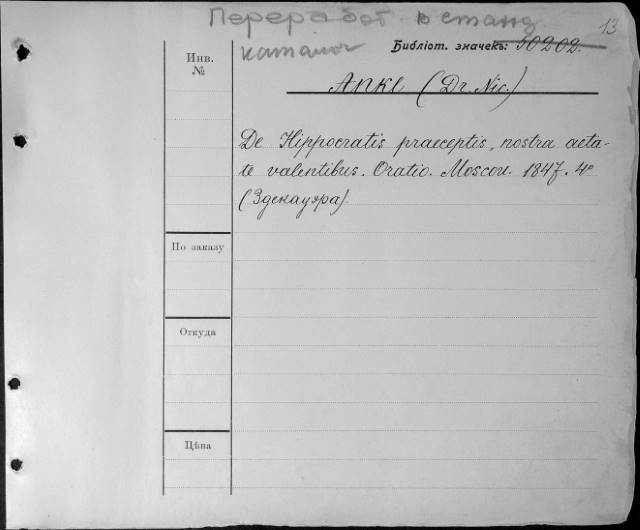 Переработ. в станд.
каталог
13
Библіот. значекъ: 50202.
Инв.
№
Anke (Dr. Nic.)
De Hippocratis praeceptis, nostra aeta-
te valentibus. Oratio. Moscou. 1847. 4°
(Здекауэра)
По заказу
Откуда
Цѣна